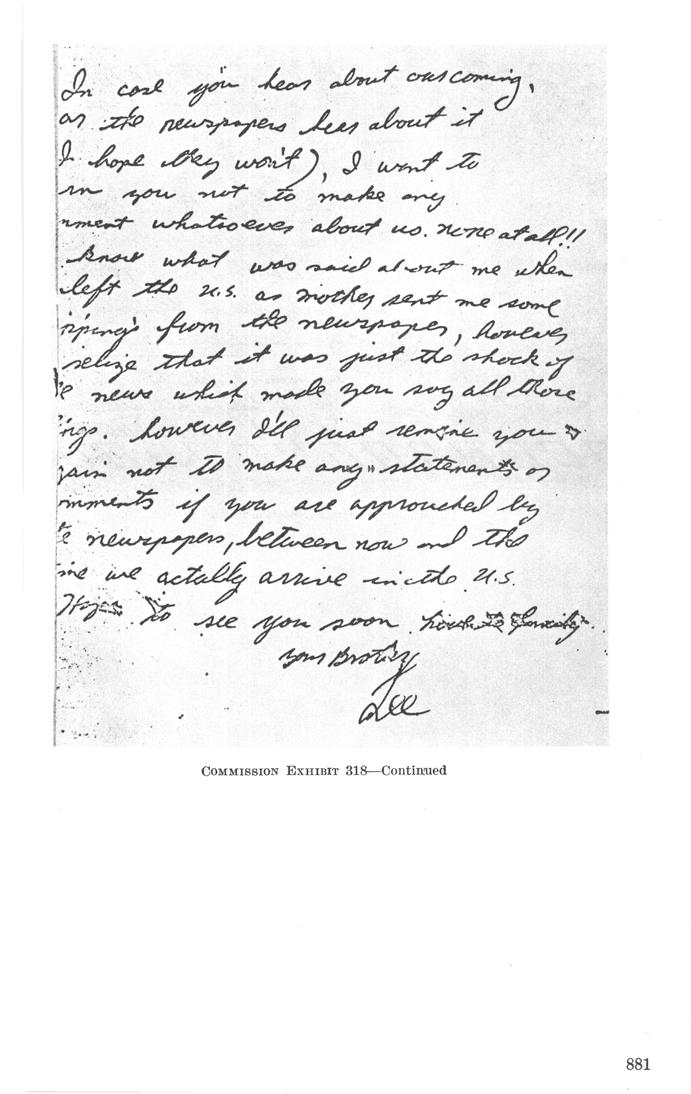 In case you hear about ouscoming,
or the newspapers hear about it
I hope they won't), I want to
rn you not to make any
mment whatsoever about us. none at all!!
know what was said about me when
left the U.S. as mother sent me some
ippings from the newspaper, however
relize that it was just the shock of
e news which made you say all those
ings. however I'll just remine you
gain not to make any statements or
mments if you are approuched by
e newspapers, between now and the
me we actally arrive in the U.S.
to see you soon
your Brother
Lee
COMMISSION EXHIBIT 318—Continued
881